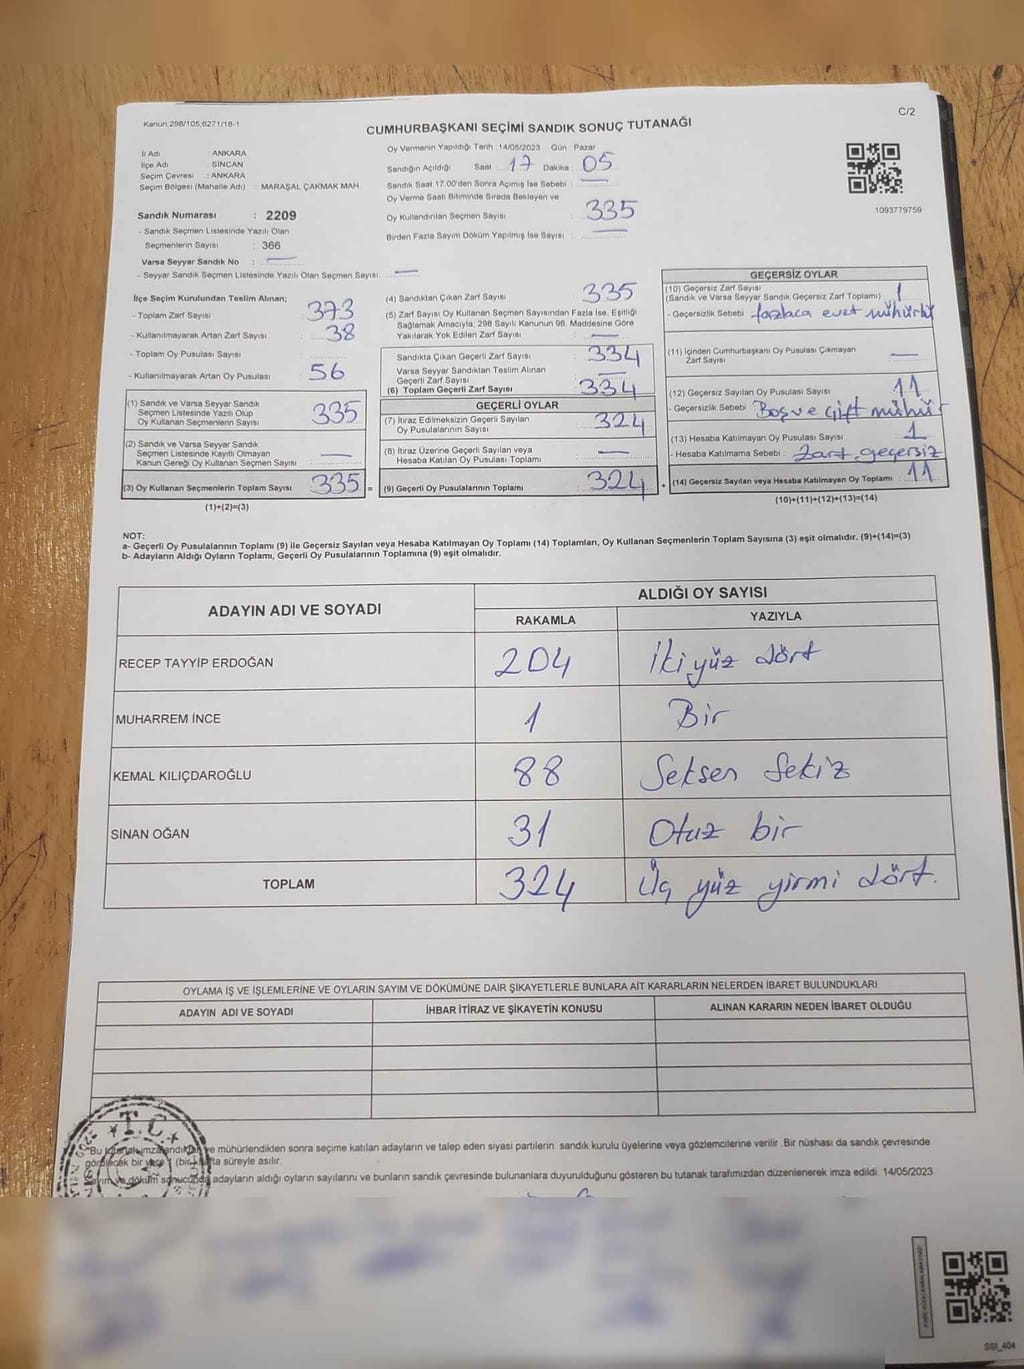 Kanun;298/105;6271/18-1
C/2
CUMHURBAŞKANI SEÇİMİ SANDIK SONUÇ TUTANAĞI
İl Adı : ANKARA
İlçe Adı : SİNCAN
Seçim Çevresi : ANKARA
Seçim Bölgesi (Mahalle Adı) : MARAŞAL ÇAKMAK MAH.
Sandık Numarası : 2209
- Sandık Seçmen Listesinde Yazılı Olan
Seçmenlerin Sayısı : 366
Varsa Seyyar Sandık No : —
- Seyyar Sandık Seçmen Listesinde Yazılı Olan Seçmen Sayısı: —
Oy Vermenin Yapıldığı Tarih :14/05/2023 Gün : Pazar
Sandığın Açıldığı Saat 17 Dakika : 05
Sandık Saat 17.00'den Sonra Açımış İse Sebebi : —
Oy Verme Saati Bitiminde Sırada Bekleyen ve
Oy Kullandırılan Seçmen Sayısı : 335
Birden Fazla Sayım Döküm Yapılmış İse Sayısı : —
1093779759
İlçe Seçim Kurulundan Teslim Alınan;
- Toplam Zarf Sayısı : 373
- Kullanılmayarak Artan Zarf Sayısı : 38
- Toplam Oy Pusulası Sayısı :
- Kullanılmayarak Artan Oy Pusulası : 56
(1) Sandık ve Varsa Seyyar Sandık
Seçmen Listesinde Yazılı Olup
Oy Kullanan Seçmenlerin Sayısı : 335
(2) Sandık ve Varsa Seyyar Sandık
Seçmen Listesinde Kayıtlı Olmayan
Kanun Gereği Oy Kullanan Seçmen Sayısı : —
(3) Oy Kullanan Seçmenlerin Toplam Sayısı : 335 =
(1)+(2)=(3)
(4) Sandıktan Çıkan Zarf Sayısı : 335
(5) Zarf Sayısı Oy Kullanan Seçmen Sayısından Fazla İse, Eşitliği
Sağlamak Amacıyla; 298 Sayılı Kanunun 98. Maddesine Göre
Yakılarak Yok Edilen Zarf Sayısı : —
Sandıkta Çıkan Geçerli Zarf Sayısı : 334
Varsa Seyyar Sandıktan Teslim Alınan
Geçerli Zarf Sayısı : —
(6) Toplam Geçerli Zarf Sayısı : 334
GEÇERLİ OYLAR
(7) İtiraz Edilmeksizin Geçerli Sayılan
Oy Pusulalarının Sayısı : 324
(8) İtiraz Üzerine Geçerli Sayılan veya
Hesaba Katılan Oy Pusulası Toplamı : —
(9) Geçerli Oy Pusulalarının Toplamı : 324 +
GEÇERSİZ OYLAR
(10) Geçersiz Zarf Sayısı
(Sandık ve Varsa Seyyar Sandık Geçersiz Zarf Toplamı) : 1
- Geçersizlik Sebebi : fazlaca evet mühürlü
(11) İçinden Cumhurbaşkanı Oy Pusulası Çıkmayan
Zarf Sayısı : —
(12) Geçersiz Sayılan Oy Pusulası Sayısı : 11
- Geçersizlik Sebebi : Boş ve çift mühür
(13) Hesaba Katılmayan Oy Pusulası Sayısı : 1
- Hesaba Katılmama Sebebi : Zarf geçersiz
(14) Geçersiz Sayılan veya Hesaba Katılmayan Oy Toplamı : 11
(10)+(11)+(12)+(13)=(14)
NOT:
a- Geçerli Oy Pusulalarının Toplamı (9) ile Geçersiz Sayılan veya Hesaba Katılmayan Oy Toplamı (14) Toplamları, Oy Kullanan Seçmenlerin Toplam Sayısına (3) eşit olmalıdır. (9)+(14)=(3)
b- Adayların Aldığı Oyların Toplamı, Geçerli Oy Pusulalarının Toplamına (9) eşit olmalıdır.
ADAYIN ADI VE SOYADI ALDIĞI OY SAYISI
RAKAMLA YAZIYLA
RECEP TAYYİP ERDOĞAN 204 İkiyüz dört
MUHARREM İNCE 1 Bir
KEMAL KILIÇDAROĞLU 88 Seksen Sekiz
SİNAN OĞAN 31 Otuz bir
TOPLAM 324 Üç yüz yirmi dört.
OYLAMA İŞ VE İŞLEMLERİNE VE OYLARIN SAYIM VE DÖKÜMÜNE DAİR ŞİKAYETLERLE BUNLARA AİT KARARLARIN NELERDEN İBARET BULUNDUKLARI
ADAYIN ADI VE SOYADI İHBAR İTİRAZ VE ŞİKAYETİN KONUSU ALINAN KARARIN NEDEN İBARET OLDUĞU
T.C.
"Bu tutanak imzalandıktan ve mühürlendikten sonra seçime katılan adayların ve talep eden siyasi partilerin sandık kurulu üyelerine veya gözlemcilerine verilir .Bir nüshası da sandık çevresinde
görülecek bir yere (bir) hafta süreyle asılır.
Sayım ve döküm sonucunda adayların aldığı oyların sayılarını ve bunların sandık çevresinde bulunanlara duyurulduğunu gösteren bu tutanak tarafımızdan düzenlenerek imza edildi. 14/05/2023
SSI_404